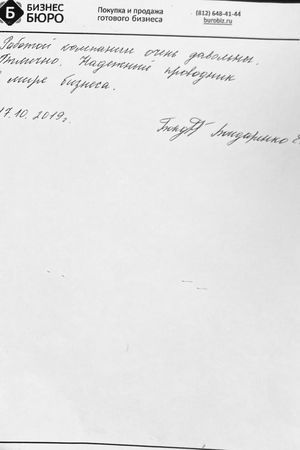 БИЗНЕС
БЮРО
Покупка и продажа
готового бизнеса
(812) 648-41-44
burobiz.ru
Работой компании очень довольны.
Отлично. Надежный проводник
в мире бизнеса.
17.10.2019г.
Бондаренко Е